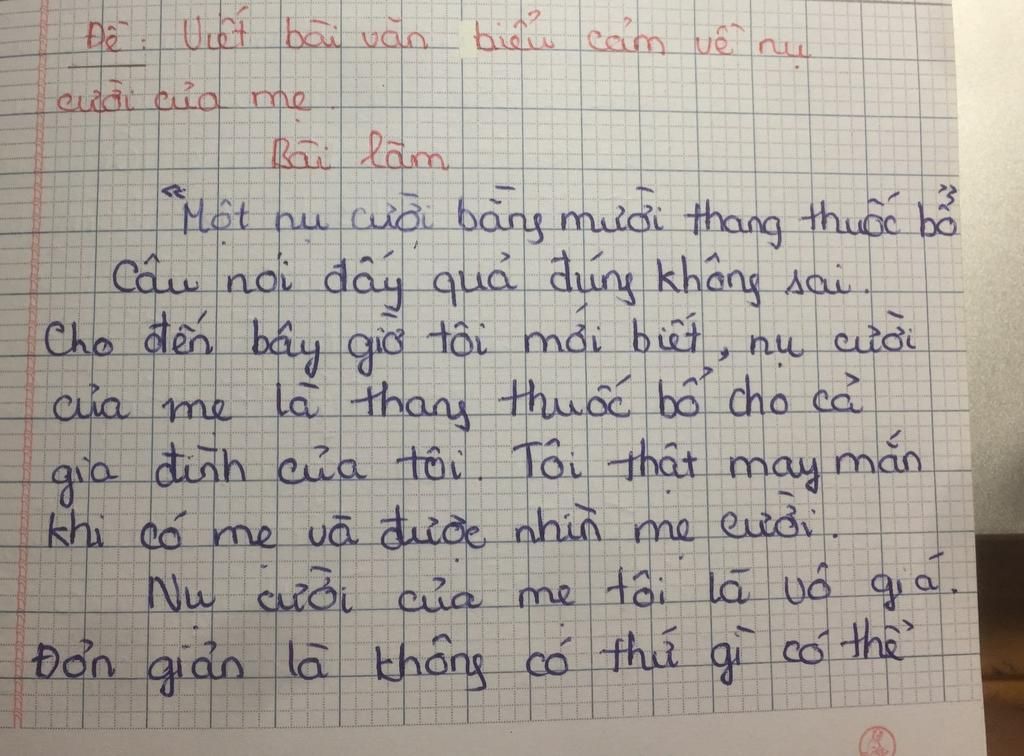 Đề: Viết bài văn biểu cảm về nụ
cười của mẹ.
Bài làm
"Một nụ cười bằng mười thang thuốc bổ"
Câu nói đấy quả đúng không sai.
Cho đến bây giờ tôi mới biết, nụ cười
của mẹ là thang thuốc bổ cho cả
gia đình của tôi. Tôi thật may mắn
khi có mẹ và được nhìn mẹ cười.
Nụ cười của mẹ tôi là vô giá.
Đơn giản là không có thứ gì có thể